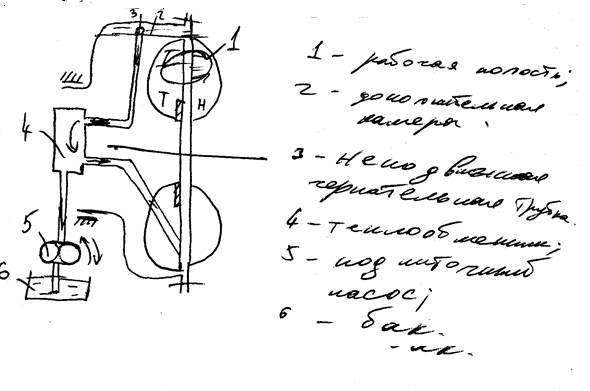 3 2 1
Т Н
4
5
6
1 – рабочая полость;
2 – дополнительная
камера.
3 – Неподвижная
черпательная трубка.
4 – теплообменник;
5 – подпиточный
насос;
6 – бак.